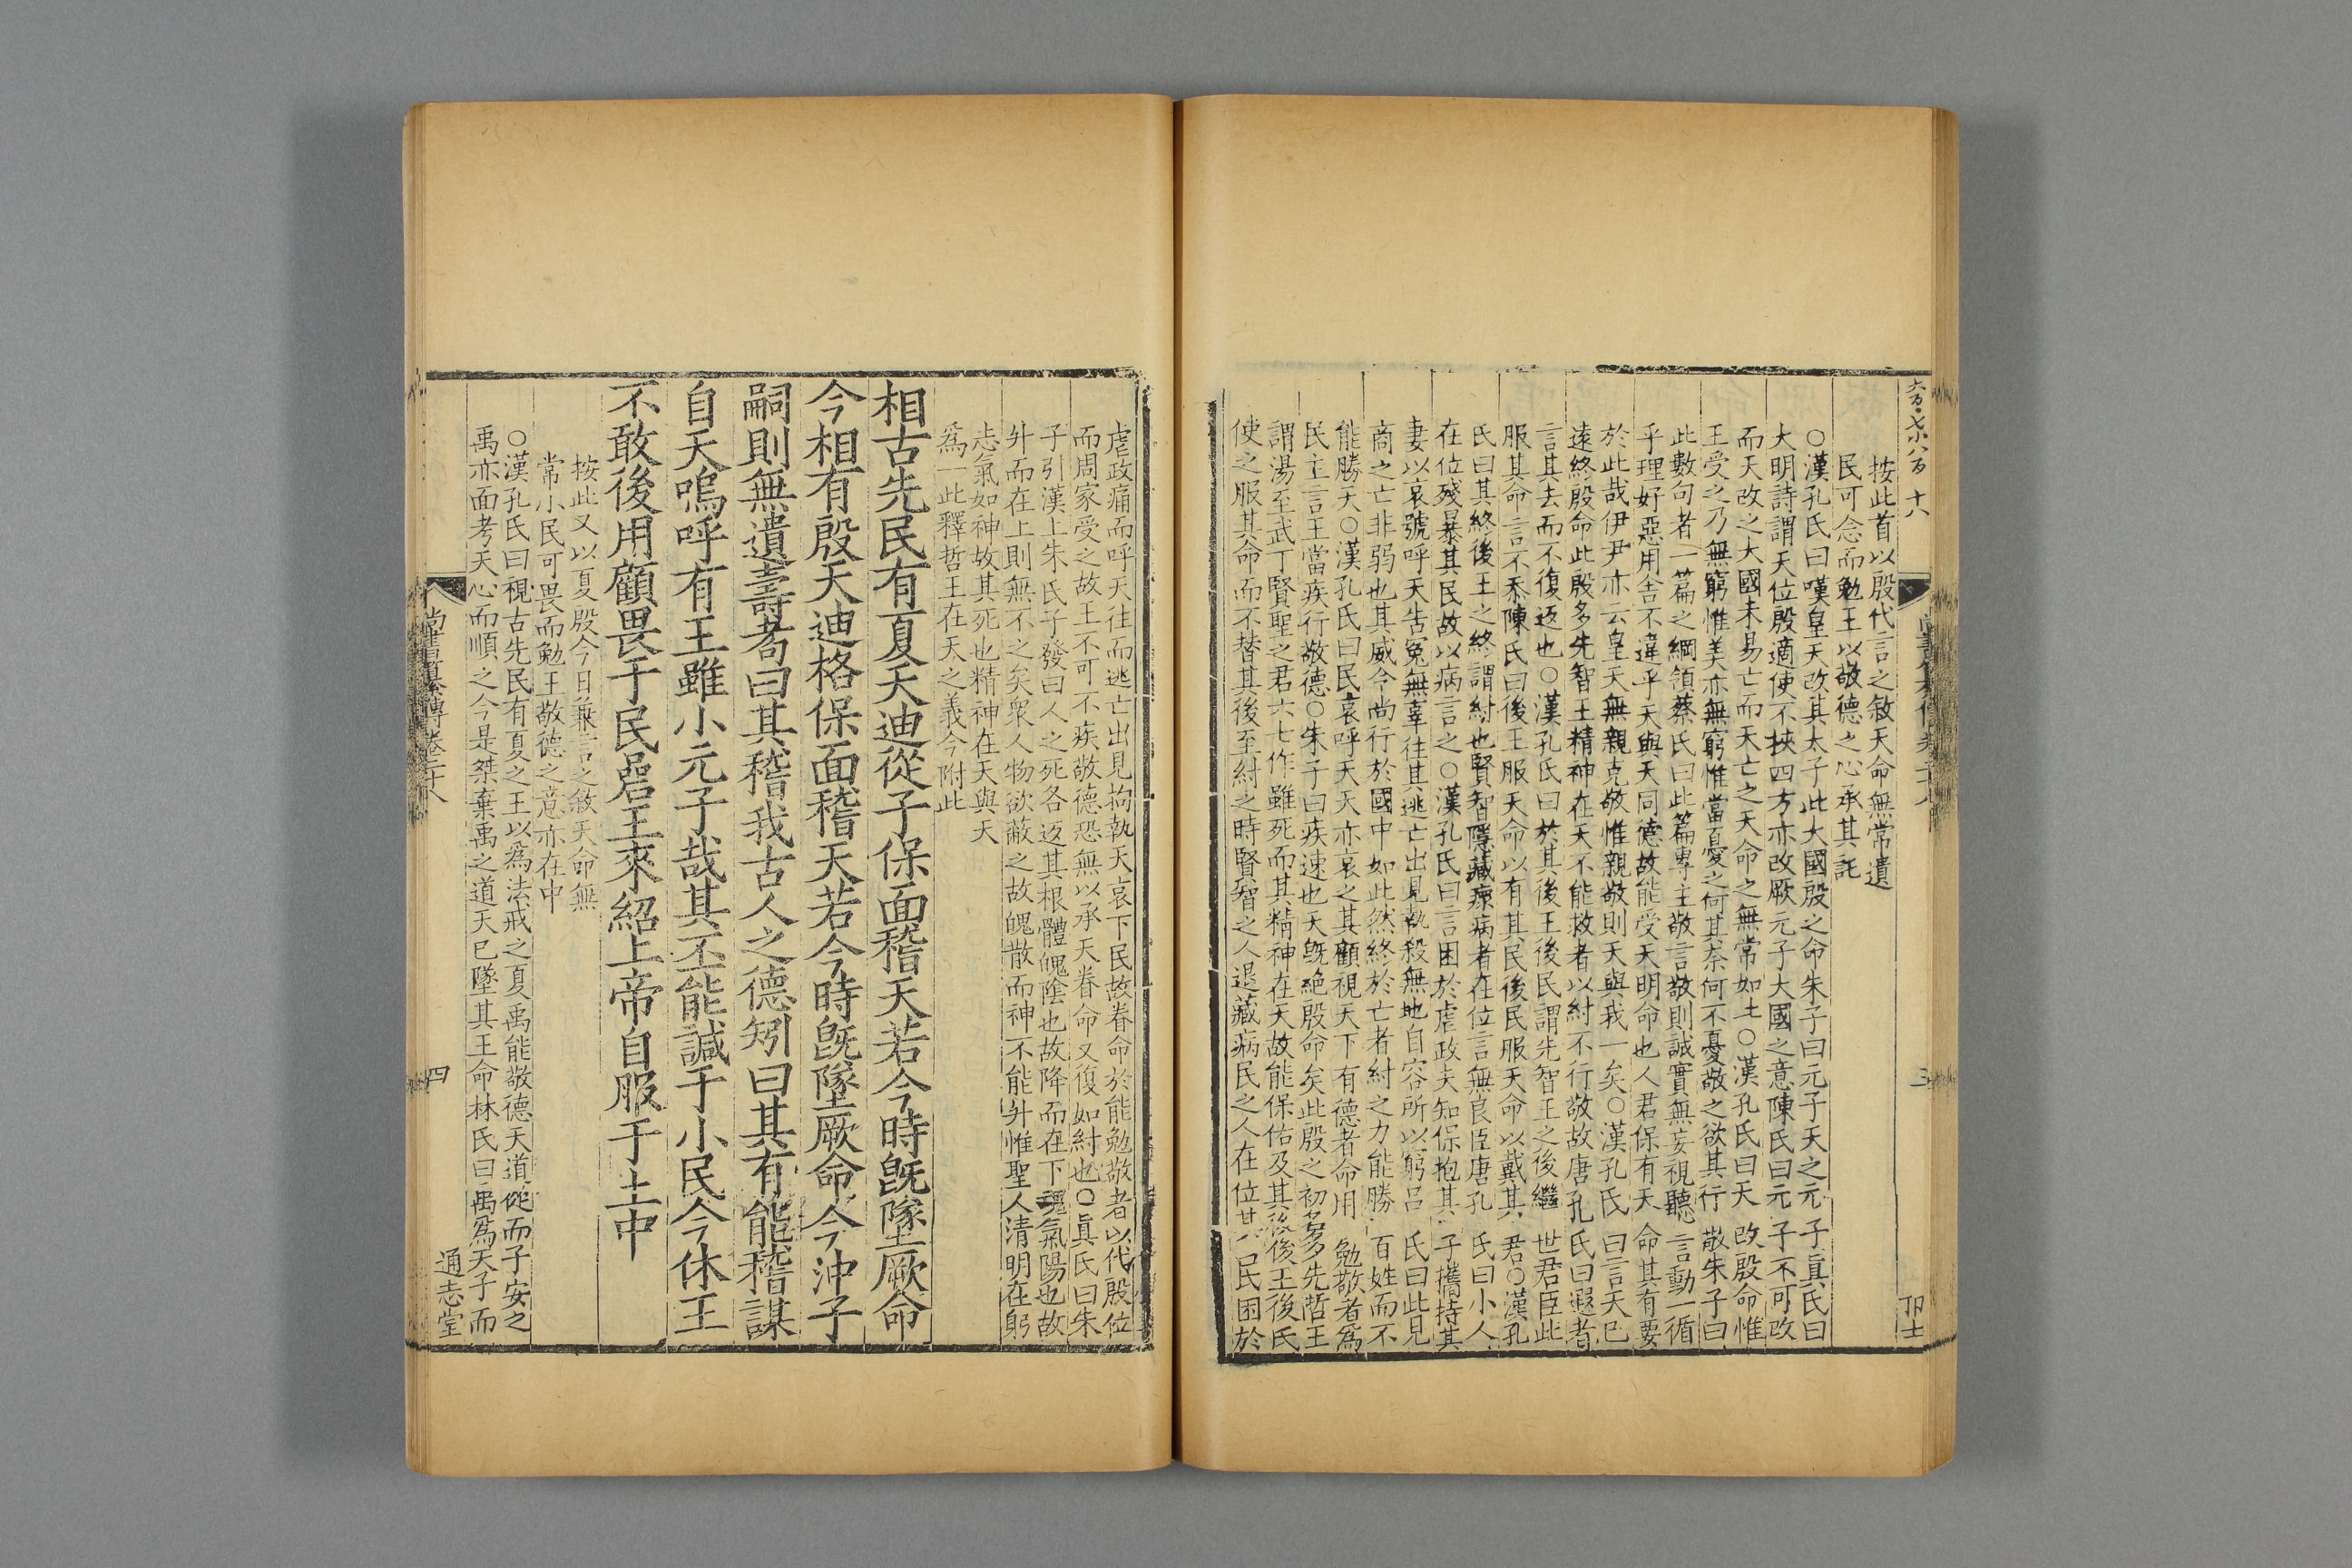 按此首以殷代言之敘天命無常遺
民可念而勉王以敬德之心承其託
○漢孔氏曰嘆皇天改其太子此大國殷之命朱子曰元子天之元子眞氏曰
大明詩謂天位殷適使不挾四方亦改厥元子大國之意陳氏曰元子不可改
而天改之大國未易亡而天亡之天命之無常如土○漢孔氏曰天改殷命惟
王受之乃無窮惟美亦無窮惟當憂之何其奈何不憂敬之欲其行敬朱子曰
此數句者一篇之綱領蔡氏曰此篇專主敬言敬則誠實無妄視聽言動一循
乎理好惡用舍不違乎天與天同德故能受天明命也人君保有天命其有要
於此哉伊尹亦云皇天無親克敬惟親敬則天與我一矣○漢孔氏曰言天已
遠終殷命此殷多先智王精神在天不能救者以紂不行敬故唐孔氏曰遐者
言其去而不復返也○漢孔氏曰於其後王後民謂先智王之後繼世君臣此
服其命言不忝陳氏曰後王服天命以有其民後民服天命以戴其君○漢孔
氏曰其終後王之終謂紂也賢智隱藏瘝病者在位言無良臣唐孔氏曰小人
在位殘暴其民故以病言之○漢孔氏曰言困於虐政夫知保抱其子攜持其
妻以哀號呼天告冤無辜往其逃亡出見執殺無地自容所以窮呂氏曰此見
商之亡非弱也其威令尚行於國中如此然終於亡者紂之力能勝百姓而不
能勝天○漢孔氏曰民哀呼天天亦哀之其顧視天下有德者命用勉敬者爲
民主言王當疾行敬德○朱子曰疾速也天旣絶殷命矣此殷之初多先哲王
謂湯至武丁賢聖之君六七作雖死而其精神在天故能保佑及其後後王後民
使之服其命而不替其後至紂之時賢智之人退藏病民之人在位其民困於
三
虐政痛而呼天往而逃亡出見拘執天哀下民故眷命於能勉敬者以代殷位
而周家受之故王不可不疾敬德恐無以承天眷命又復如紂也○眞氏曰朱
子引漢上朱氏子發曰人之死各返其根體魄陰也故降而在下魂氣陽也故
升而在上則無不之矣衆人物欲蔽之故魄散而神不能升惟聖人清明在躬
志氣如神故其死也精神在天與天
爲一此釋哲王在天之義今附此
相古先民有夏天迪從子保面稽天若今時旣墜厥命
今相有殷天迪格保面稽天若今時旣墜厥命今沖子
嗣則無遺壽耇曰其稽我古人之德矧曰其有能稽謀
自天嗚呼有王雖小元子哉其丕能諴于小民今休王
不敢後用顧畏于民碞王來紹上帝自服于土中
按此又以夏殷今日兼言之敘天命無
常小民可畏而勉王敬德之意亦在中
○漢孔氏曰視古先民有夏之王以爲法戒之夏禹能敬德天道從而子安之
禹亦面考天心而順之今是桀棄禹之道天已墜其王命林氏曰禹爲天子而
尚書纂傳卷二十八
四
通志堂